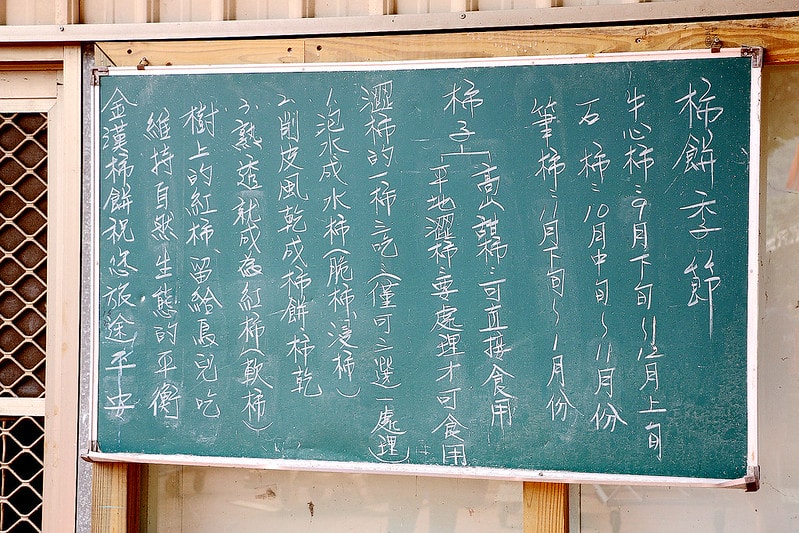 柿餅季節
牛心柿:9月下旬~12月上旬
石柿:10月中旬~11月份
筆柿:11月下旬~1月份
柿子 高山甜柿:可直接食用
平地澀柿:要處理才可食用
澀柿的一柿三吃:(僅可三選一處理)
1.泡水成水柿(脆柿、浸柿)
2.削皮風乾成柿餅柿乾
3.熟透就成為紅柿(軟柿)
樹上的紅柿、留給鳥兒吃
維持自然生態的平衡
金漢柿餅祝您旅途平安